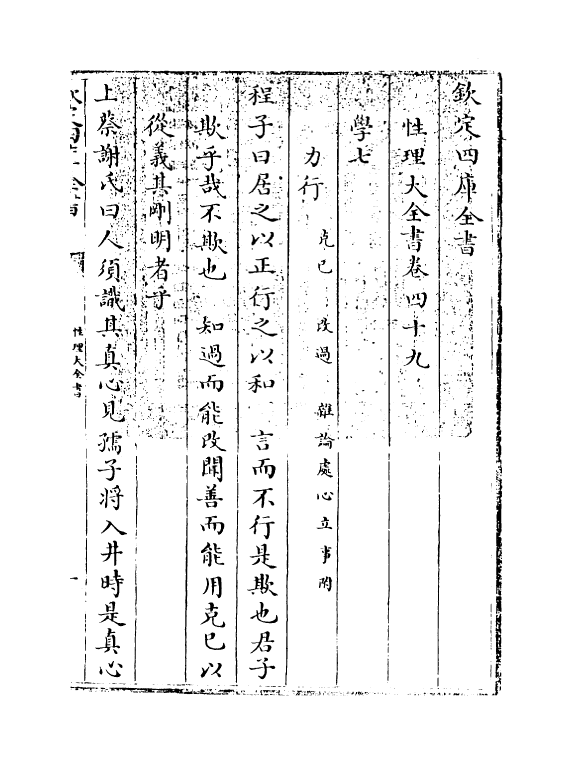 欽定四庫全書
性理大全書卷四十九
學七
力行 克已 改過 雜論處心立事附
程子曰居之以正行之以和 言而不行是欺也君子
欺乎哉不欺也 知過而能改聞善而能用克已以
從義其剛明者乎
上蔡謝氏曰人須識其真心見孺子將入井時是真心
性理大全書
一